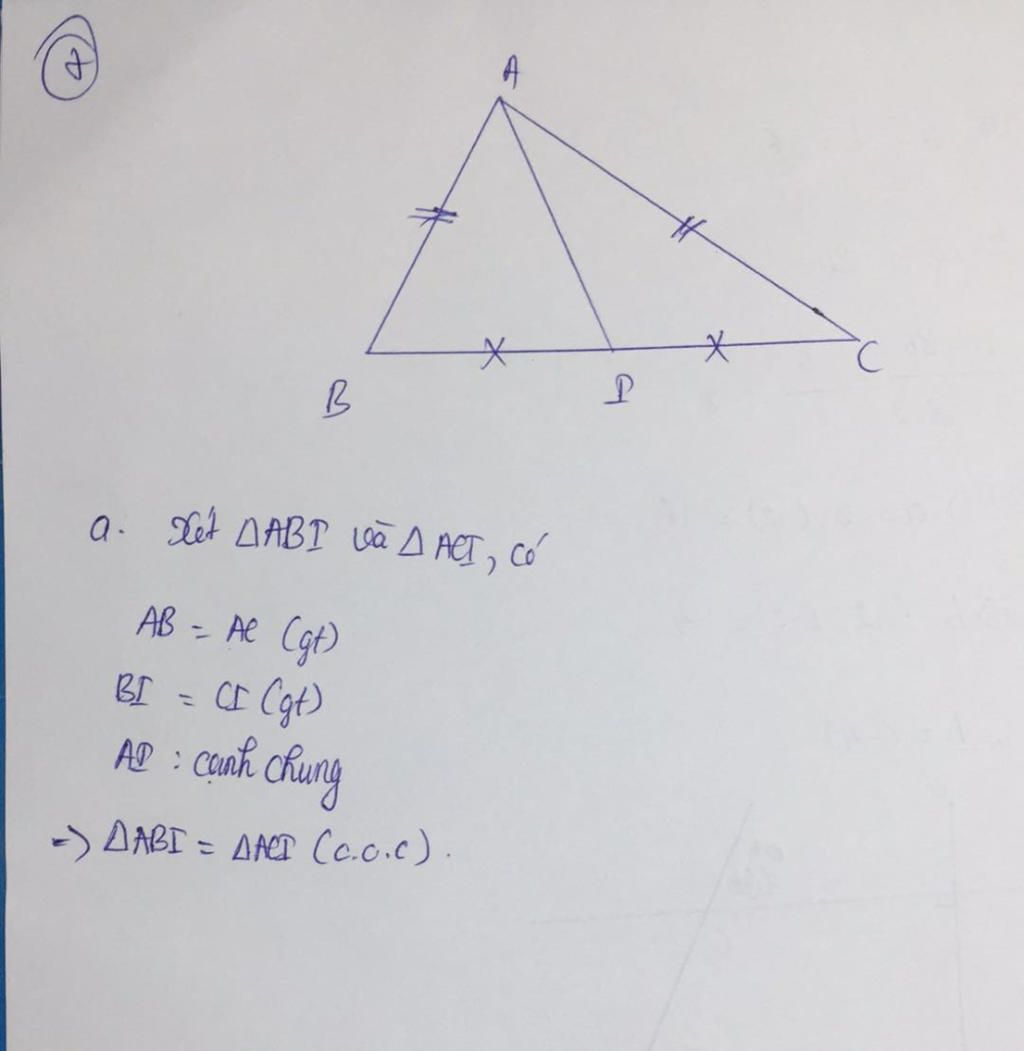 7
A
B
I
C
a. Xét ΔABI và ΔACI, có
AB = AC (gt)
BI = CI (gt)
AI : cạnh chung
=> ΔABI = ΔACI (c.c.c).